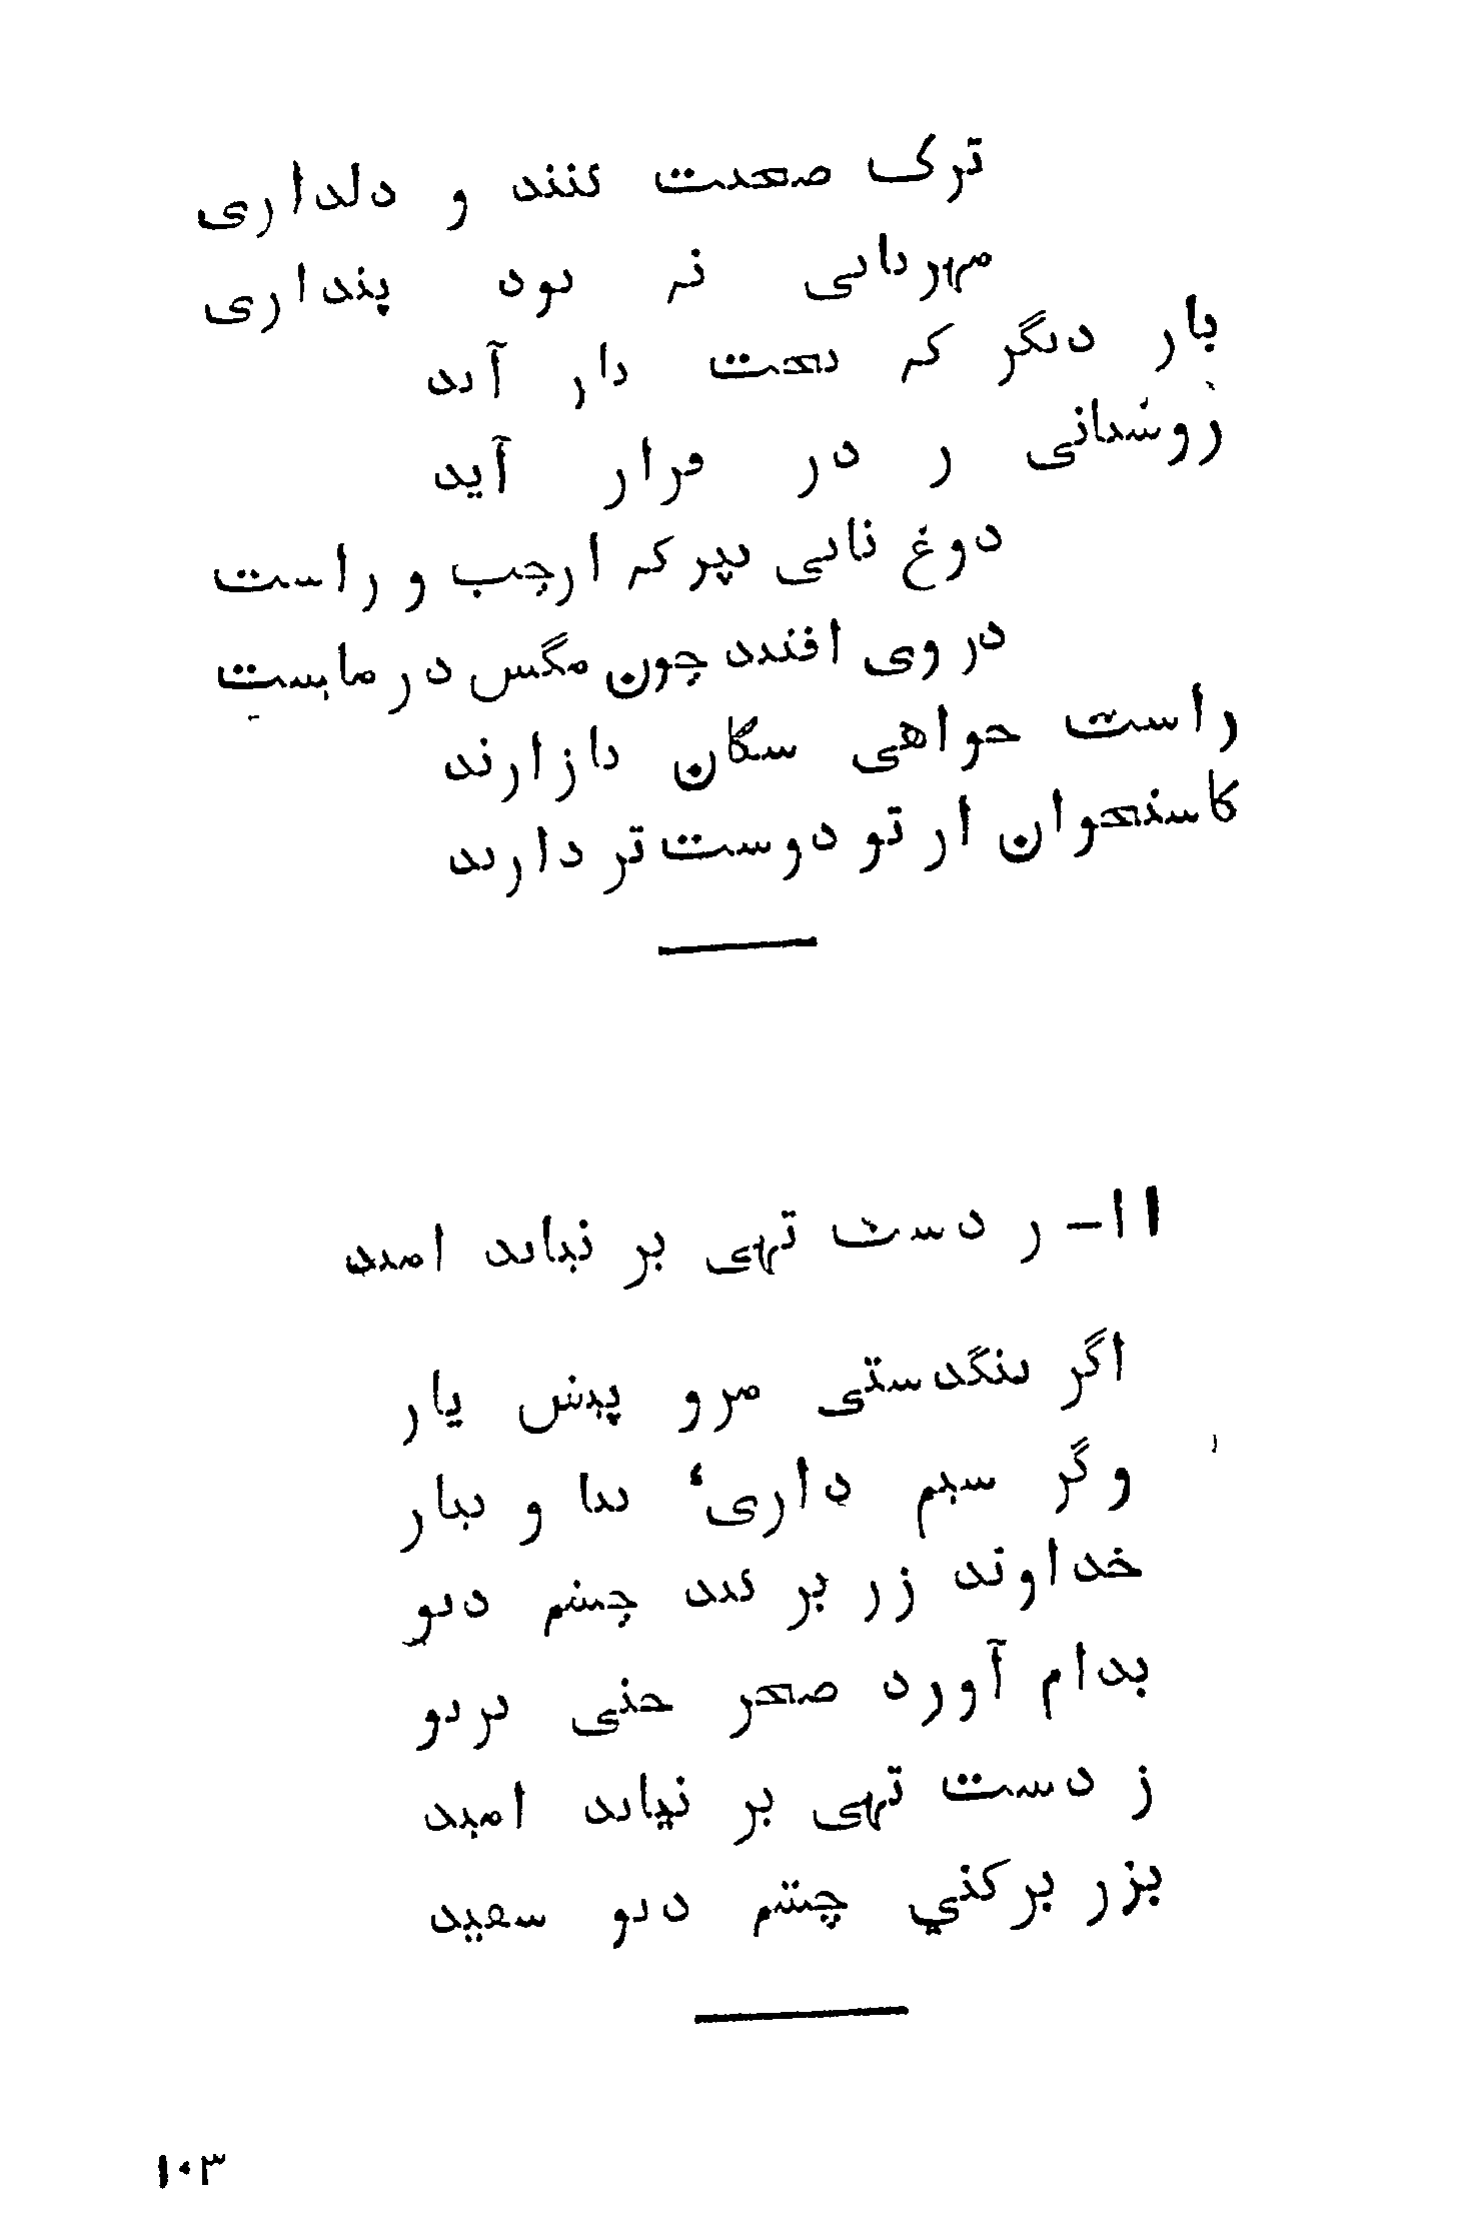 ترک صحبت کنند و دلداری
مهربانی نه بود پنداری
بار دیگر که بخت باز آید
روشنائی ز در فراز آید
دوغ نائی بپر که از چپ و راست
در وی افتند چون مگس در ماست
راست خواهی سگان بازارند
کاستخوان از تو دوست تر دارند
۱۱- ز دست تهی بر نیاید امید
اگر تنگدستی مرو پیش یار
وگر سیم داری، بیا و بیار
خداوند زر بر کند چشم دیو
بدام آورد صخر جنی بریو
ز دست تهی بر نیاید امید
بزر برکنی چشم دیو سفید
۱۰۳